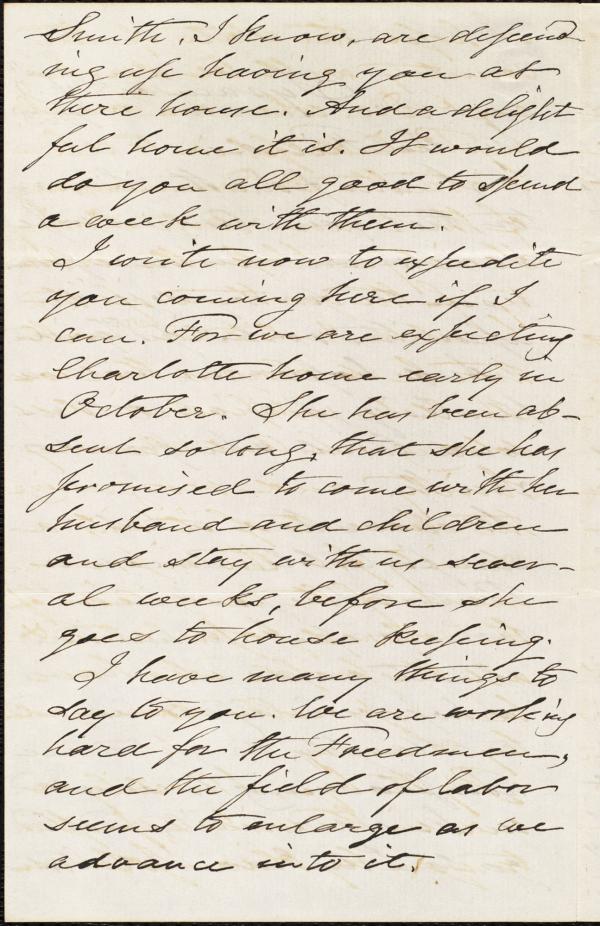 Smith, I know, are depend-
ing up having you at
there house. And a delight
ful home it is. It would
do you all good to spend
a week with them.
I write now to expedite
you coming here if I
can. For we are expecting
Charlotte home early in
October. She has been ab-
sent so long, that she has
promised to come with her
husband and children
and stay with us sever-
al weeks, before she
goes to house keeping.
I have many things to
say to you. We are working
hard for the Freedmen,
and the field of labor
seems to enlarge as we
advance into it.